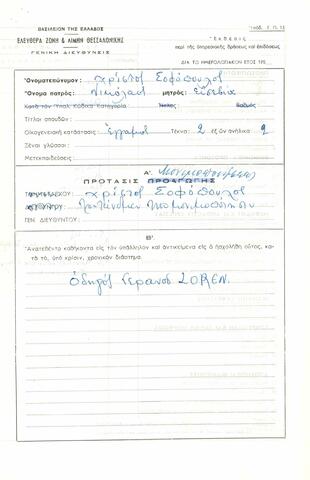 ΒΑΣΙΛΕΙΟΝ ΤΗΣ ΕΛΛΑΔΟΣ
ΕΛΕΥΘΕΡΑ ΖΩΝΗ & ΛΙΜΗΝ ΘΕΣΣΑΛΟΝΙΚΗΣ
ΓΕΝΙΚΗ ΔΙΕΥΘΥΝΣΙΣ
Έκθεσις
περί της υπηρεσιακής δράσεως και επιδόσεως
ΔΙΑ ΤΟ ΗΜΕΡΟΛΟΓΙΑΚΟΝ ΕΤΟΣ 19
Όνοματεπώνυμον: Χρίστος Σοφόπουλος
Όνομα πατρός: Νικόλαος μητρός: Ευσεβία
Κατά τον Υπαλ. Κώδικα Κατηγορία Κλάδος: Βαθμός:
Τίτλοι σπουδών:
Οικογενειακή κατάστασις: Έγγαμος Τέκνα: 2 εξ ων ανήλικα: 2
Ξέναι γλώσσαι:
Μετεκπαιδεύσεις:
Α'. Μονιμοποιήσεως
ΠΡΟΤΑΣΙΣ ΠΡΟΑΓΩΓΗΣ
Χρίστος Σοφόπουλος
ΓΕΝ. ΔΙΕΥΘΥΝΤΟΥ:
Β'.
Ανατεθέντα καθήκοντα εις τον υπάλληλον και αντικείμενα εις α ησχολήθη ούτος, κα-
τά το, υπό κρίσιν, χρονικόν διάστημα.
Οδηγός Γερανού LOREN.